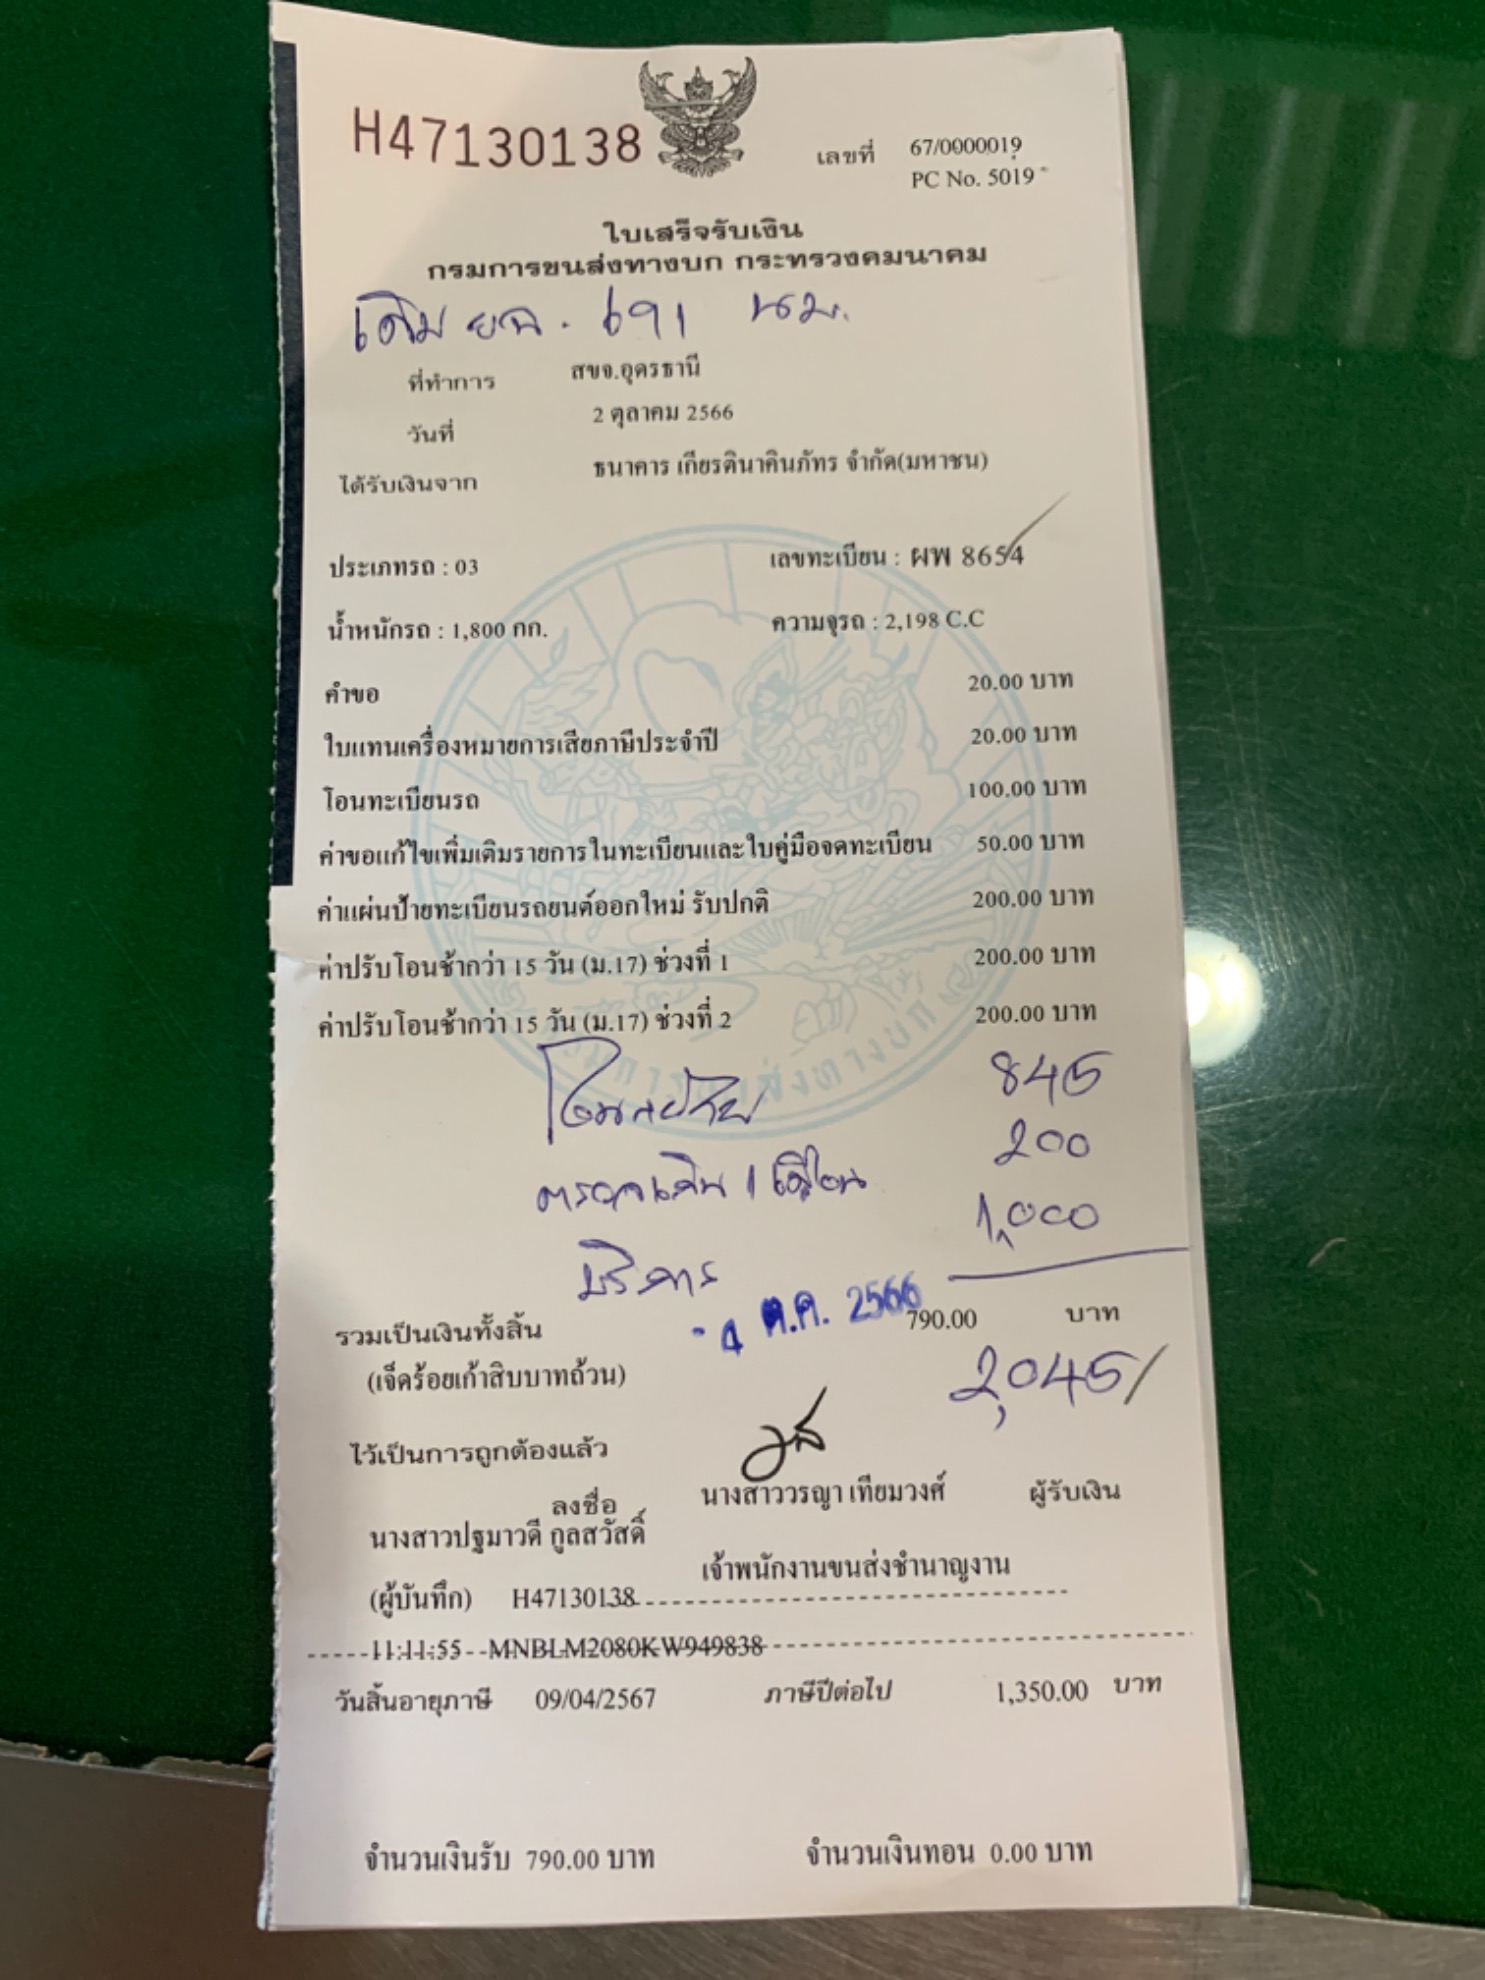 H47130138
เลขที่ 67/0000019
PC No. 5019
ใบเสร็จรับเงิน
กรมการขนส่งทางบก กระทรวงคมนาคม
เดิม ยฉ. 691 นม.
ที่ทำการ สขจ.อุดรธานี
วันที่ 2 ตุลาคม 2566
ได้รับเงินจาก ธนาคาร เกียรตินาคินภัทร จำกัด(มหาชน)
ประเภทรถ : 03 เลขทะเบียน : ผพ 8654
น้ำหนักรถ : 1,800 กก. ความจุรถ : 2,198 C.C
คำขอ 20.00 บาท
ใบแทนเครื่องหมายการเสียภาษีประจำปี 20.00 บาท
โอนทะเบียนรถ 100.00 บาท
ค่าขอแก้ไขเพิ่มเติมรายการในทะเบียนและใบคู่มือจดทะเบียน 50.00 บาท
ค่าแผ่นป้ายทะเบียนรถยนต์ออกใหม่ รับปกติ 200.00 บาท
ค่าปรับโอนช้ากว่า 15 วัน (ม.17) ช่วงที่ 1 200.00 บาท
ค่าปรับโอนช้ากว่า 15 วัน (ม.17) ช่วงที่ 2 200.00 บาท
845
200
1,000
บริการ
- 4 ต.ค. 2566
รวมเป็นเงินทั้งสิ้น 790.00 บาท
(เจ็ดร้อยเก้าสิบบาทถ้วน) 2,045/
ไว้เป็นการถูกต้องแล้ว
ลงชื่อ นางสาววรญา เทียมวงศ์ ผู้รับเงิน
นางสาวปฐมาวดี กูลสวัสดิ์
เจ้าพนักงานขนส่งชำนาญงาน
(ผู้บันทึก) H47130138
11:11:55 MNBLM2080KW949838
วันสิ้นอายุภาษี 09/04/2567 ภาษีปีต่อไป 1,350.00 บาท
จำนวนเงินรับ 790.00 บาท จำนวนเงินทอน 0.00 บาท